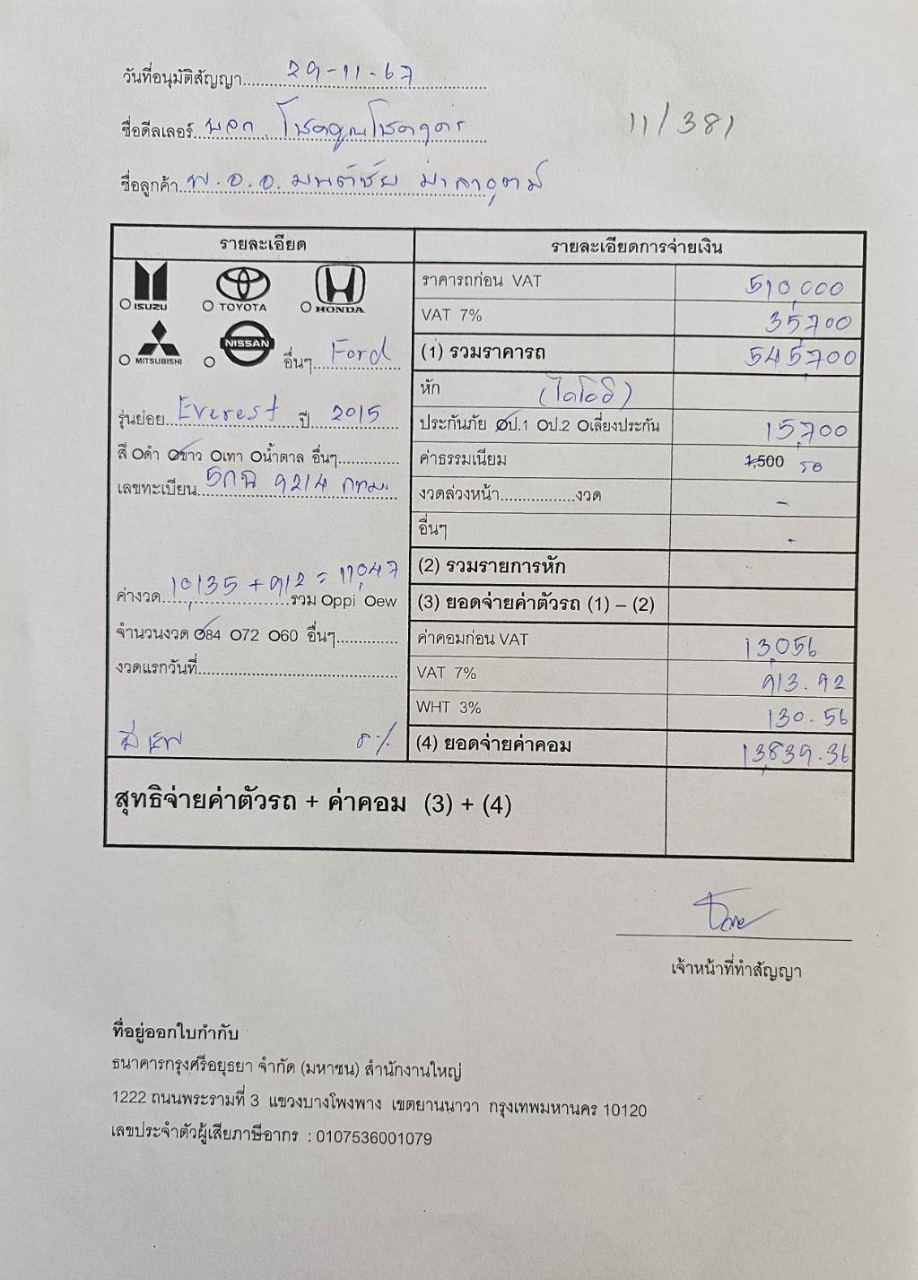 วันที่อนุมัติสัญญา 29-11-67
ชื่อดีลเลอร์ หจก. โชคคูณโชค
11/381
ชื่อลูกค้า พ.อ.อ. มนต์ชัย
รายละเอียด
รายละเอียดการจ่ายเงิน
ISUZU TOYOTA HONDA
ราคารถก่อน VAT 510,000
VAT 7% 35,700
MITSUBISHI NISSAN อื่นๆ Ford
(1) รวมราคารถ 545,700
หัก
รุ่นย่อย Everest ปี 2015
ประกันภัย ป.1 ป.2 เลี่ยงประกัน 15,700
สี ดำ ขาว เทา น้ำตาล อื่นๆ
ค่าธรรมเนียม 1,500 รอ
เลขทะเบียน 5กฉ 9214 กทม.
งวดล่วงหน้า งวด -
อื่นๆ -
(2) รวมรายการหัก
ค่างวด 10,135 + 912 = 11,047 รวม ppi ew
(3) ยอดจ่ายค่าตัวรถ (1) – (2)
จำนวนงวด 84 72 60 อื่นๆ
ค่าคอมก่อน VAT 13,056
งวดแรกวันที่
VAT 7% 913.92
WHT 3% 130.56
8%
(4) ยอดจ่ายค่าคอม 13,839.36
สุทธิจ่ายค่าตัวรถ + ค่าคอม (3) + (4)
เจ้าหน้าที่ทำสัญญา
ที่อยู่ออกใบกำกับ
ธนาคารกรุงศรีอยุธยา จำกัด (มหาชน) สำนักงานใหญ่
1222 ถนนพระรามที่ 3 แขวงบางโพงพาง เขตยานนาวา กรุงเทพมหานคร 10120
เลขประจำตัวผู้เสียภาษีอากร : 0107536001079